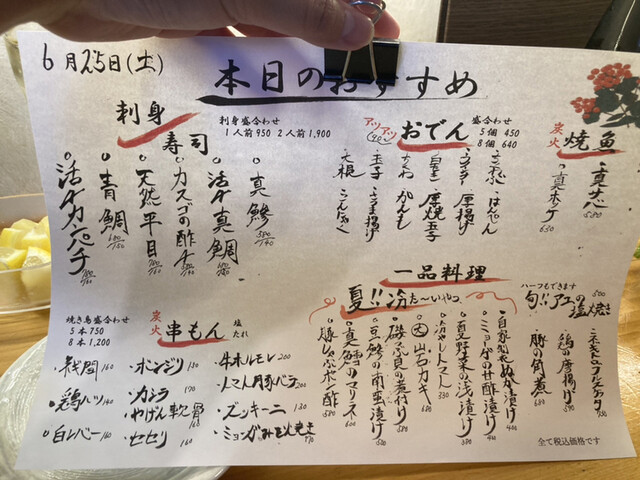 6月25日(土)
本日のおすすめ
刺身
寿司
刺身盛合わせ
1人前950 2人前1,900
真鯵 580/140
活〆真鯛
カスゴの酢〆
天然平目
青鯛 600/150
活〆カンパチ
アツアツ
おでん
5個 450
8個 640
はんぺん
厚揚げ
厚焼玉子
がんも
ごぼう揚げ
こんにゃく
ちくわ
玉子
大根
炭火
焼魚
真ホッケ 650
一品料理
夏!!冷た〜いやつ
自家製ぬか漬け
ミョウガの甘酢漬け 400
夏野菜の浅漬け
冷やしトマト 330
岩ガキ 680
磯つぶ貝の煮付け
豆鯵の南蛮漬け
真鱈のマリネ
豚しゃぶポン酢 580
ハーフもできます
旬!!アユの塩焼き 500
鶏の唐揚げ
豚の角煮 680
焼き鳥盛合わせ
5本 750
8本 1,200
炭火
串もん
塩
たれ
・砂肝 160
・鶏ハツ 140
・白レバー 160
・ボンジリ 130
・カシラ 190
・やげん軟骨
・セセリ 160
・牛ホルモン 200
・トマト豚バラ 200
・ズッキーニ 130
・ミョウガ
全て税込価格です